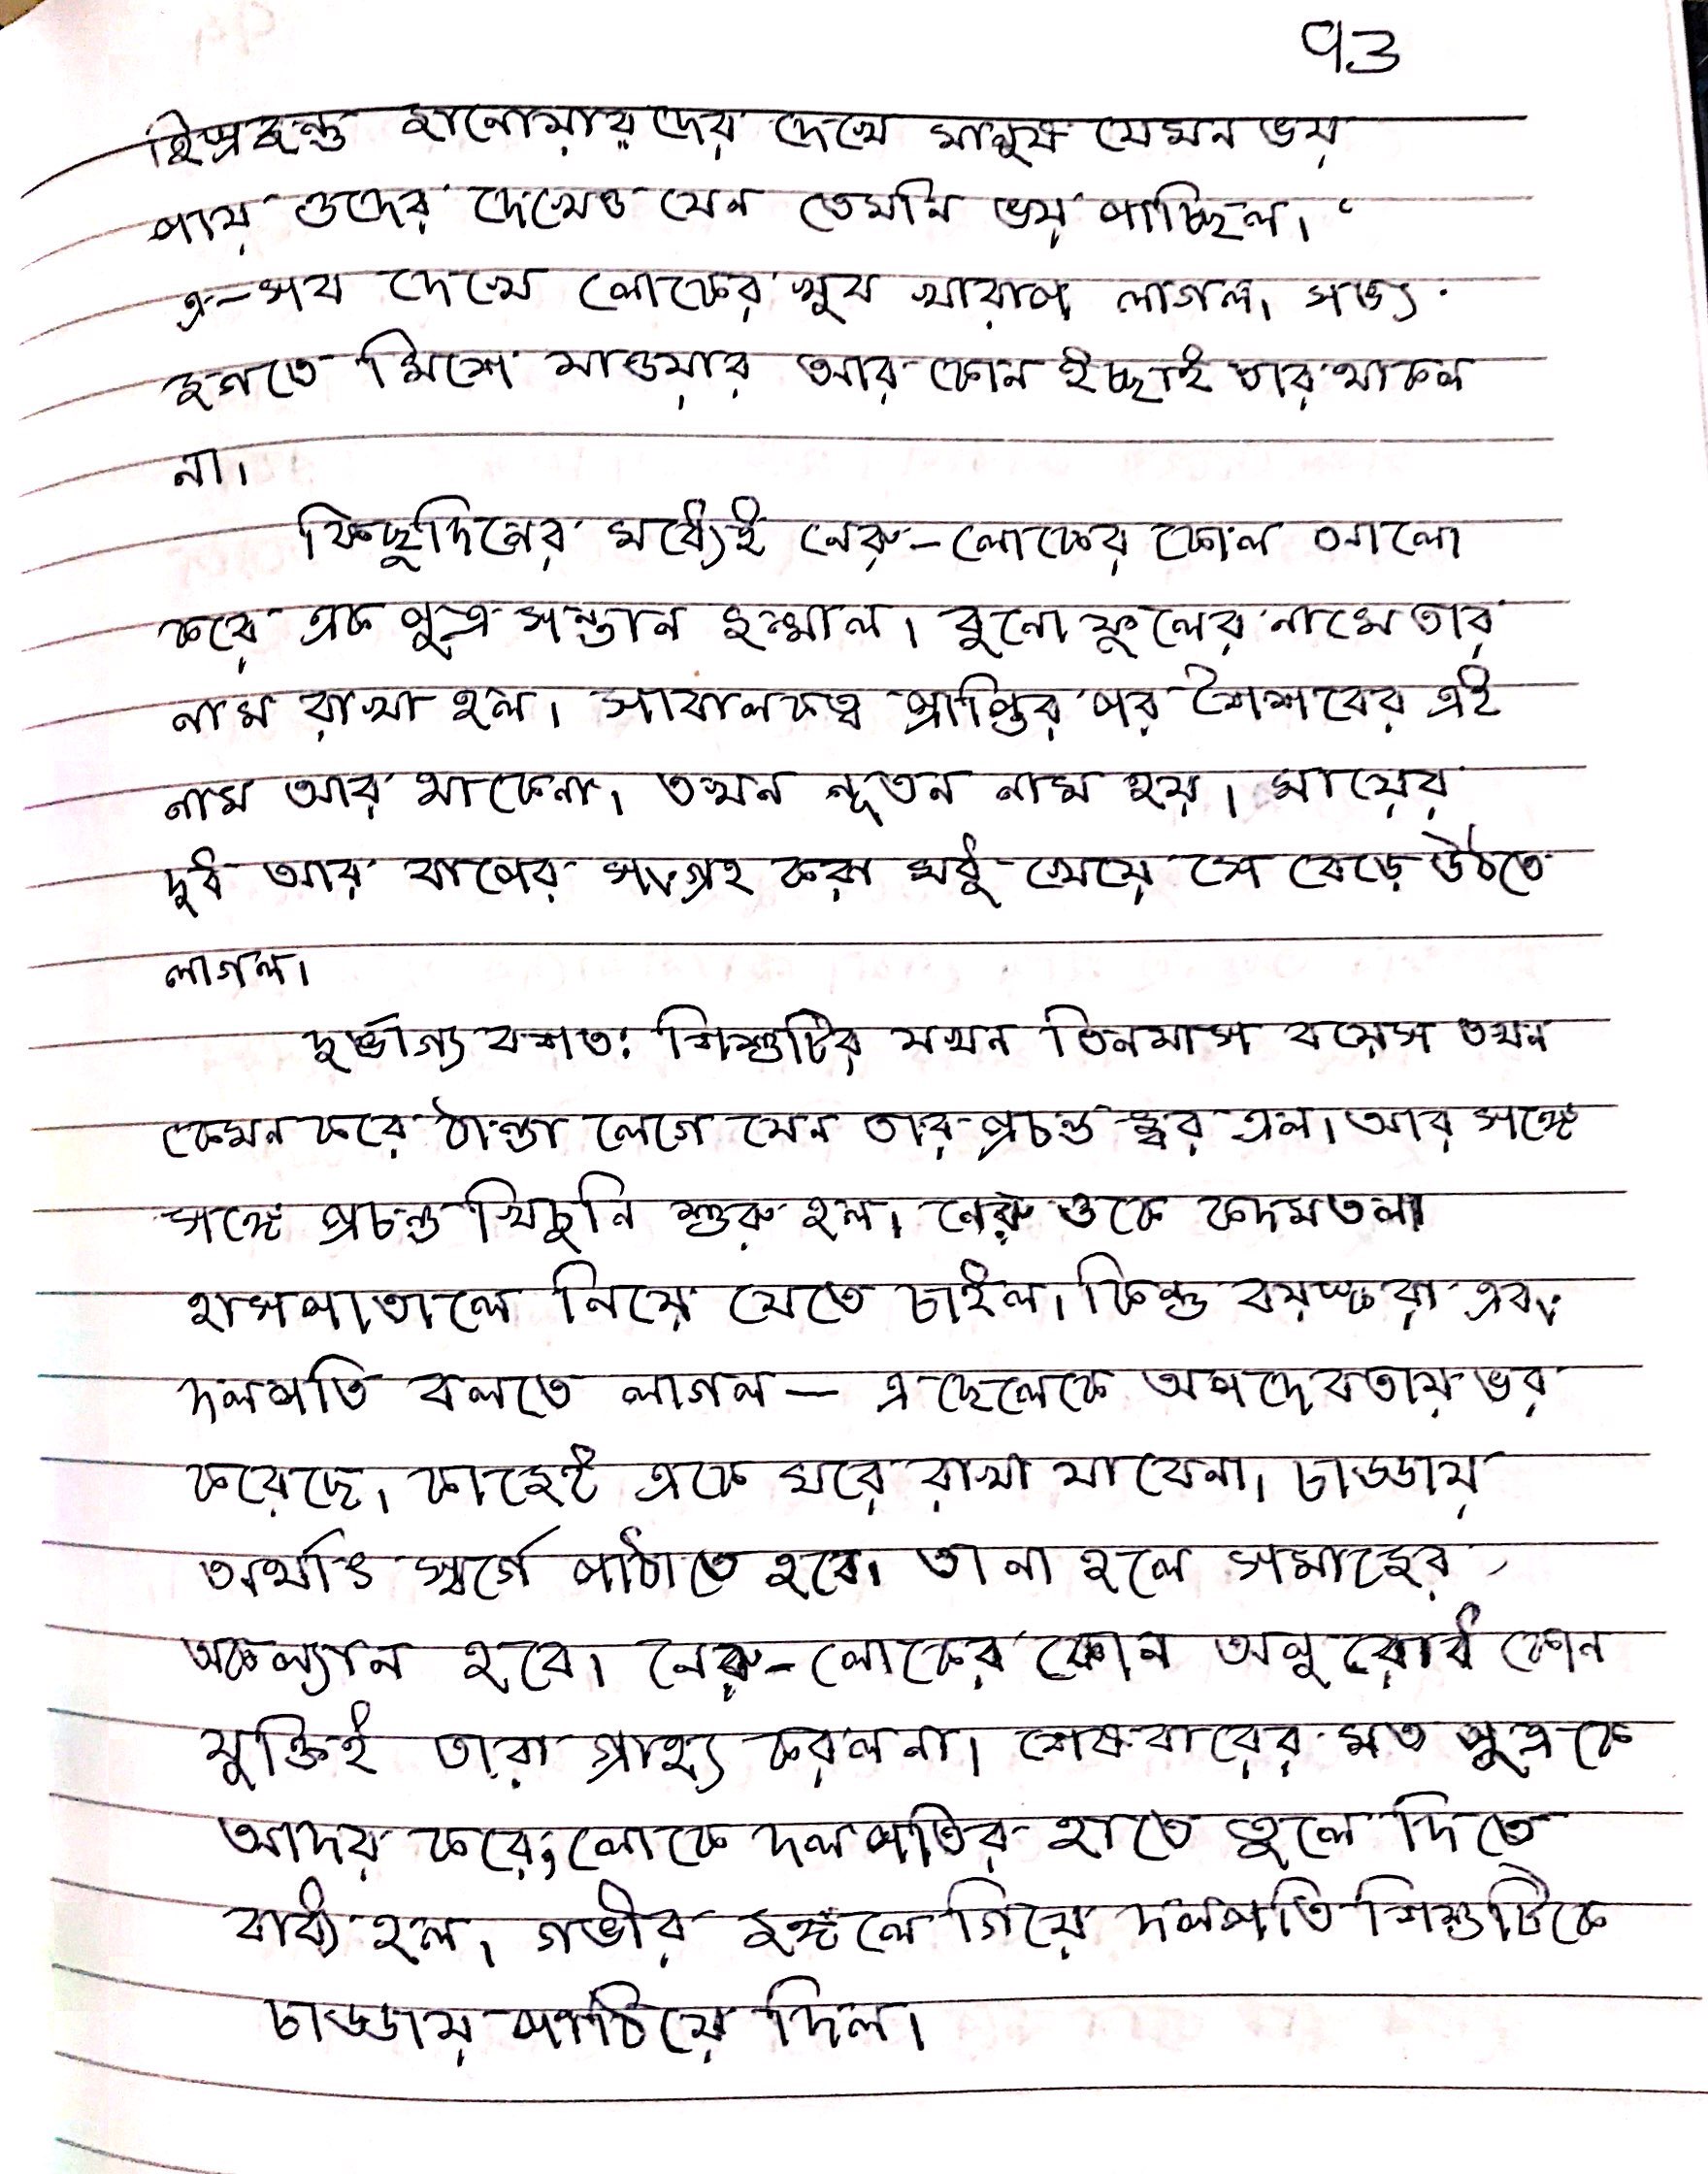 ৭৩
হিংস্রজন্তু জানোয়ারদের দেখে মানুষ যেমন ভয়
পায় ওদের দেখেও যেন তেমনি ভয় পাচ্ছিল।
এ-সব দেখে লোকের খুব খারাপ লাগল। সভ্য
জগতে মিশে যাওয়ার আর কোন ইচ্ছাই তার থাকল
না।
কিছুদিনের মধ্যেই নেরু-লোকের কোল আলো
করে এক পুত্র সন্তান জন্মাল। বুনো ফুলের নামে তার
নাম রাখা হল। সাবালকত্ব প্রাপ্তির পর শৈশবের এই
নাম আর থাকেনা। তখন নূতন নাম হয়। মায়ের
দুধ আর বাপের সংগ্রহ করা মধু খেয়ে সে বেড়ে উঠতে
লাগল।
দুর্ভাগ্য বশতঃ শিশুটির যখন তিনমাস বয়েস তখন
কেমন করে ঠান্ডা লেগে যেন তার প্রচন্ড জ্বর এল। আর সঙ্গে
সঙ্গে প্রচন্ড খিচুনি শুরু হল। নেরু ওকে কদমতলা
হাসপাতালে নিয়ে যেতে চাইল। কিন্তু বয়স্করা এবং
দলপতি বলতে লাগল — এ ছেলেকে অপদেবতায় ভর
করেছে। কাজেই একে ঘরে রাখা যাবেনা। চাড্ডায়
অর্থাৎ স্বর্গে পাঠাতে হবে। তা না হলে সমাজের
অকল্যান হবে। নেরু-লোকের কোন অনুরোধ কোন
যুক্তিই তারা গ্রাহ্য করলনা। শেষবারের মত পুত্রকে
আদর করে, লোকে দলপতির হাতে তুলে দিতে
বাধ্য হল। গভীর জঙ্গলে গিয়ে দলপতি শিশুটিকে
চাড্ডায় পাঠিয়ে দিল।